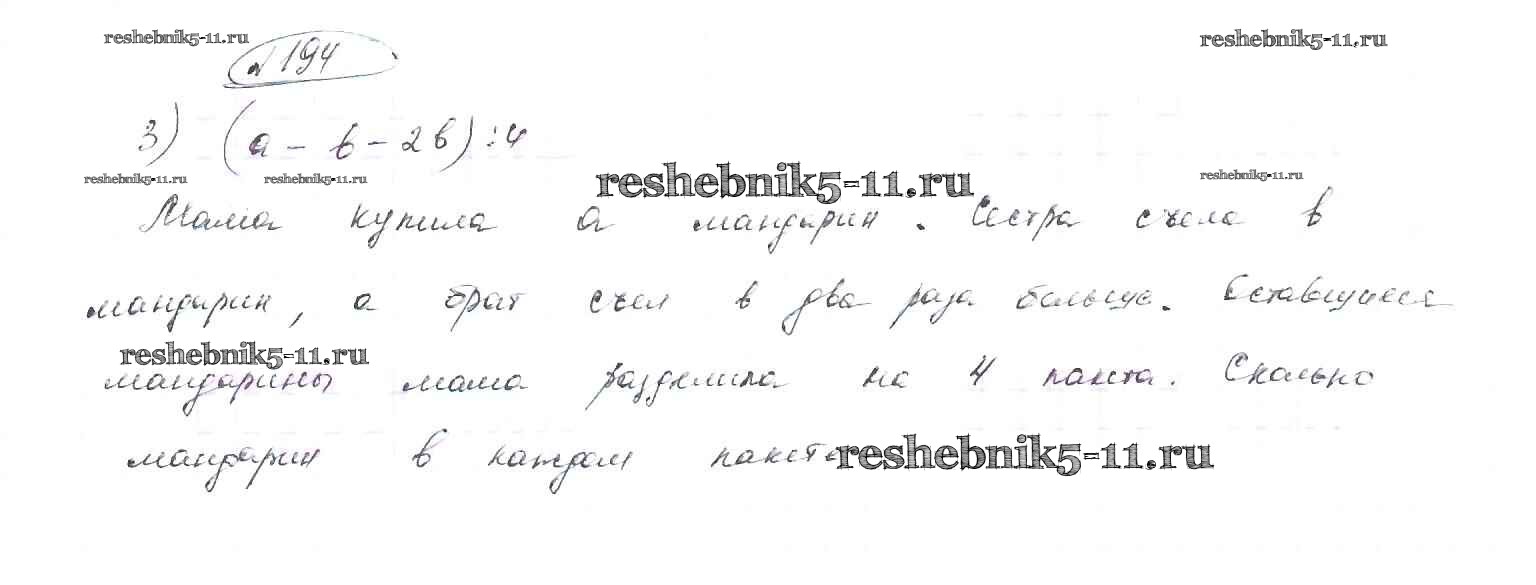 reshebnik5-11.ru reshebnik5-11.ru
№ 194
3) (a - b - 2b) : 4
reshebnik5-11.ru reshebnik5-11.ru reshebnik5-11.ru reshebnik5-11.ru
Мама купила a мандарин. Сестра съела b
мандарин, а брат съел в два раза больше. Оставшиеся
reshebnik5-11.ru
мандарины мама разделила на 4 пакета. Сколько
мандарин в каждом пакете reshebnik5-11.ru